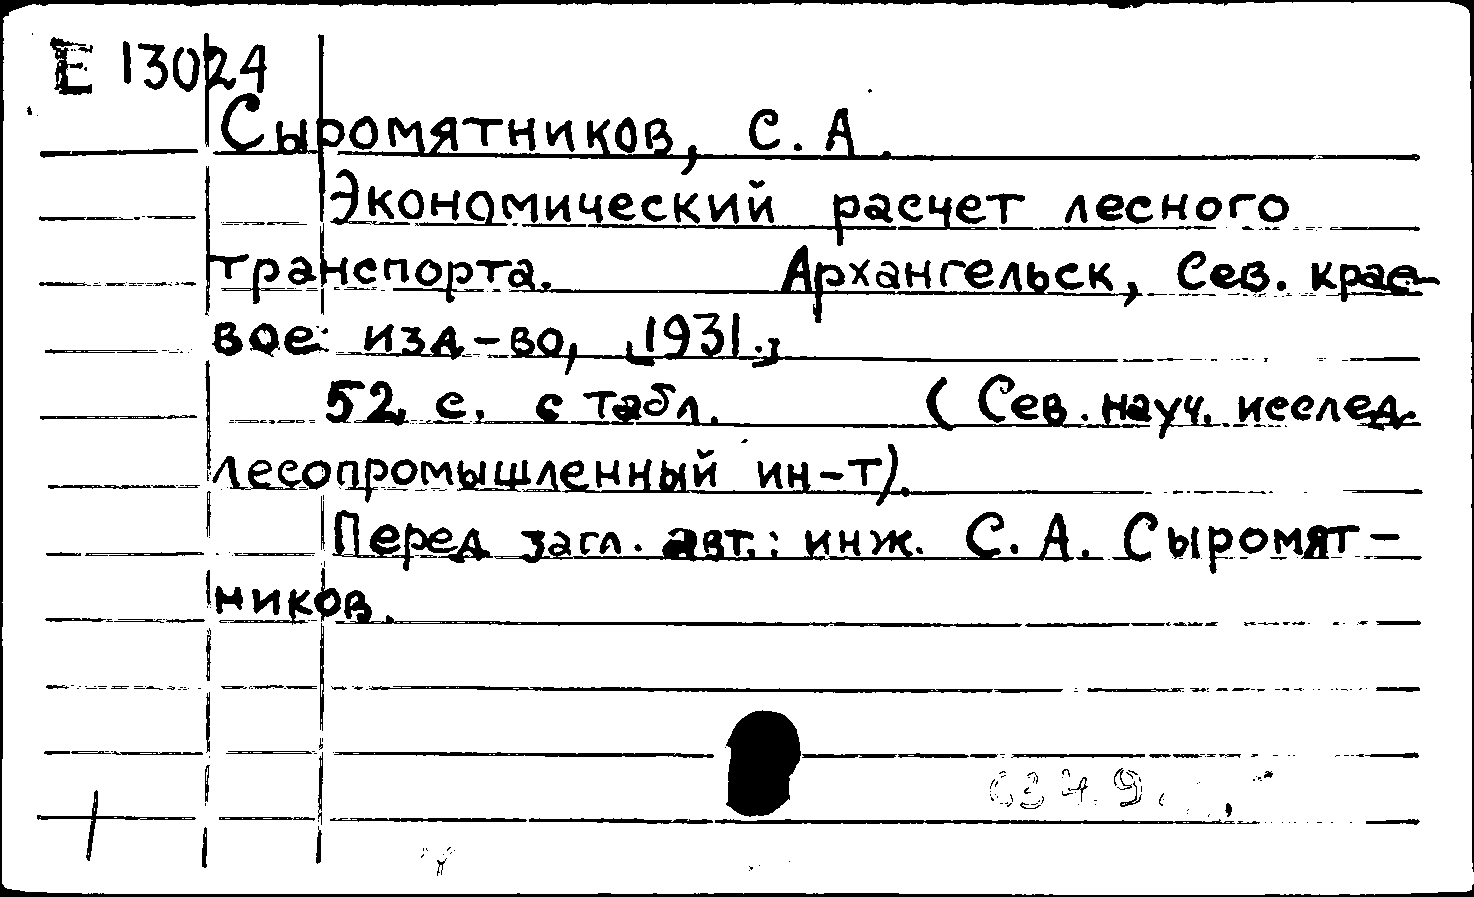 Е 13024
Сыромятников, С. А.
Экономический расчет лесного
транспорта. Архангельск, Сев. крае-
вое изд-во, [1931.]
52 с. с табл. (Сев. науч. исслед.
лесопромышленный ин-т).
Перед загл. авт.: инж. С. А. Сыромят-
ников.
634.9.